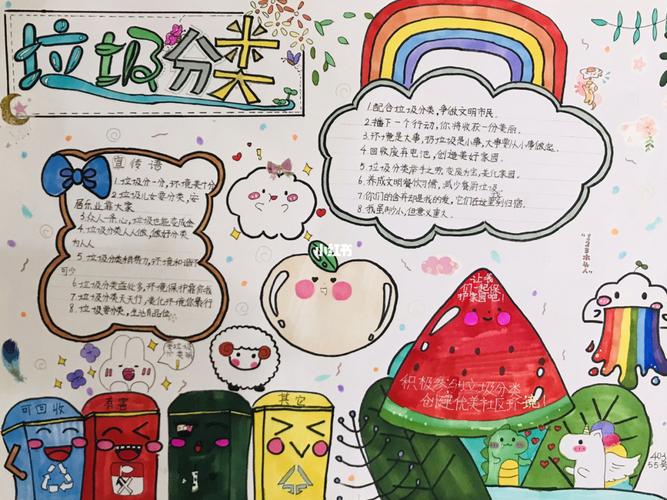 垃圾分类
宣传语
1.垃圾分一分,环境美十分
2.垃圾儿女要分类,安
居乐业靠大家
3.众人一条心,垃圾也能变成金
4.垃圾分类人人做,做好分类
为人人
5.垃圾分类
可少
6.垃圾分类益处多,环境保护靠你我
7.垃圾分类天天行,美化环境你最行
8.垃圾要分类,生活有品位
1.配合垃圾分类,争做文明市民。
2.播下一个行动,你将收获一份美丽。
3.环境是大事,扔垃圾是小事,大事要从小事做起。
4.回收废弃电池,创造美好家园。
5.垃圾分类举手之劳,变废为宝,美化家园。
6.养成文明餐饮习惯,减少餐厨垃圾
7.你们的舍弃却是我的爱,它们在这里列归宿.
8.我虽则小,但意义重大。
小红书
让我
们一起保
护家园吧!
积极参与垃圾分类
创建优美社区环境!
可回收
有害
其它
55号